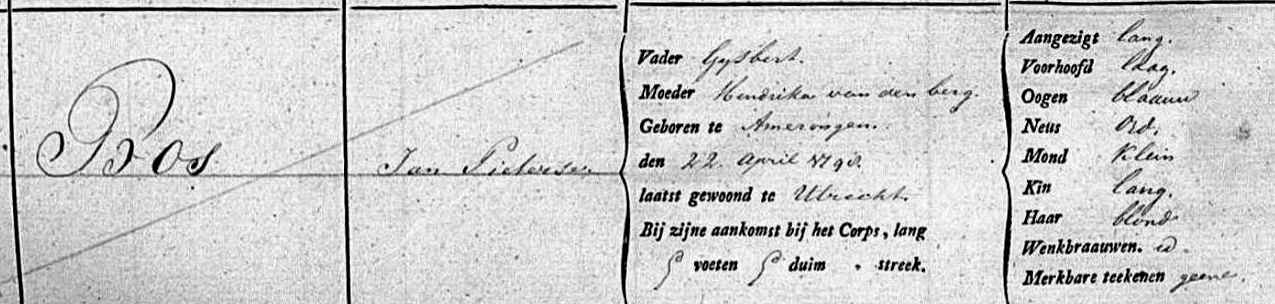 Ros
Jan Pieterse
Vader Gysbert.
Moeder Hendrika van den berg.
Geboren te Amerongen.
den 22 april 1790.
laatst gewoond te Utrecht.
Bij zijne aankomst bij het Corps, lang
5 voeten 5 duim " streek.
Aangezigt lang.
Voorhoofd laag.
Oogen blaauw
Neus Ord.
Mond Klein
Kin lang.
Haar blond
Wenkbraauwen. id.
Merkbare teekenen geene.